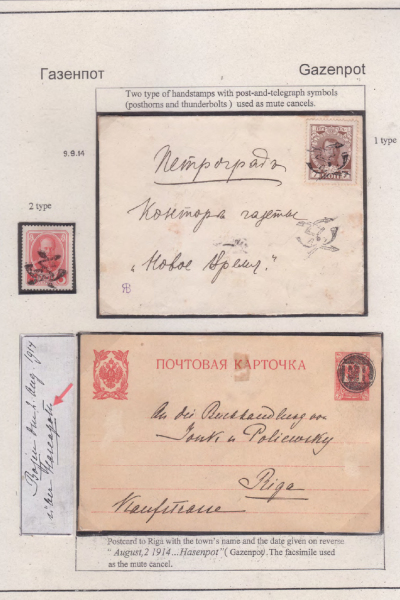 Газенпот
Gazenpot
Two type of handstamps with post-and-telegraph symbols
(posthorns and thunderbolts ) used as mute cancels.
9.9.14
1 type
2 type
Петроградъ
Контора газеты
„Новое Время."
ПОЧТОВАЯ КАРТОЧКА
An die Buchhandlung von
Jonk u Poliewsky
Riga
Kaufstrasse
Aug. 1914
über Hasenpoth
Postcard to Riga with the town's name and the date given on reverse
" August,2 1914…Hasenpot"( Gazenpot).The facsimile used
as the mute cancel.